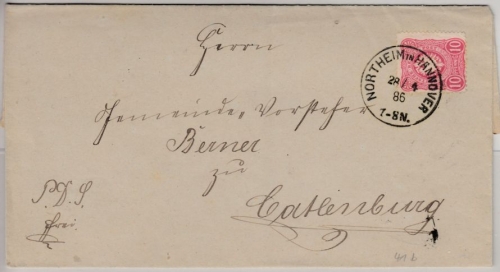 Herrn
10
10
NORTHEIM IN HANNOVER
28/4
86
7-8N.
Gemeinde-Vorsteher
Berner
zu
P.D.S.
frei.
Catlenburg